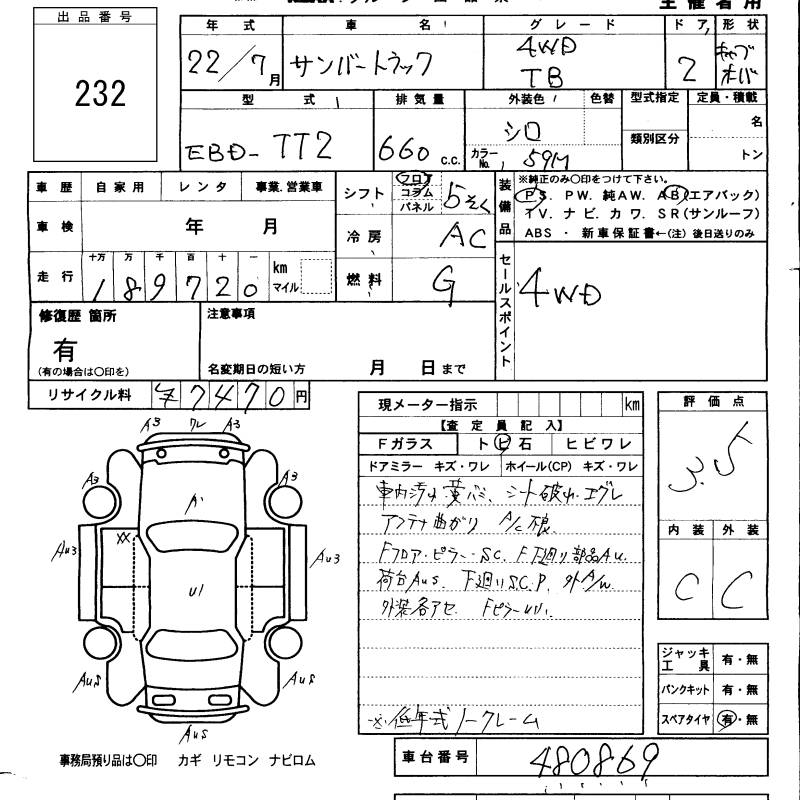 主催者用
出品番号
232
年式 車名 グレード ドア 形状
22/7月 サンバートラック 4WD TB 2 キャブオーバ
型式 排気量 外装色 色替 型式指定 定員・積載
EBD-TT2 660 c.c. シロ 類別区分 名
カラーNo. 59M トン
車歴 自家用 レンタ 事業.営業車
車検 年 月
走行 十万 万 千 百 十 一
189720 km マイル
シフト フロア コラム パネル 5そく
冷房 AC
燃料 G
装備品
※純正のみ○印をつけて下さい。
PS. PW. 純AW. AB(エアバック)
TV. ナビ. カワ. SR(サンルーフ)
ABS ・ 新車保証書←(注)後日送りのみ
セールスポイント
4WD
修復歴 箇所
有
(有の場合は○印を)
注意事項
名変期日の短い方 月 日まで
リサイクル料 ¥7470円
現メーター指示 km
【査定員記入】
Fガラス トビ石 ヒビワレ
ドアミラー キズ・ワレ ホイール(CP) キズ・ワレ
車内汚れ 黄バミ、シート破れ、エグレ
アンテナ曲がり A/C不良
Fフロア・ピラー・SC. F下廻り部品AU.
荷台AU5. 下廻りS.C.P.
外装各アセ
※低年式ノークレーム
評価点
3.5
内装 外装
C C
ジャッキ工具 有・無
パンクキット 有・無
スペアタイヤ 有・無
車台番号 480869
A3 ワレ A3
A3 A3
AU3 XX AU3
U1
AU5 AU5
AU5
事務局預り品は○印 カギ リモコン ナビロム